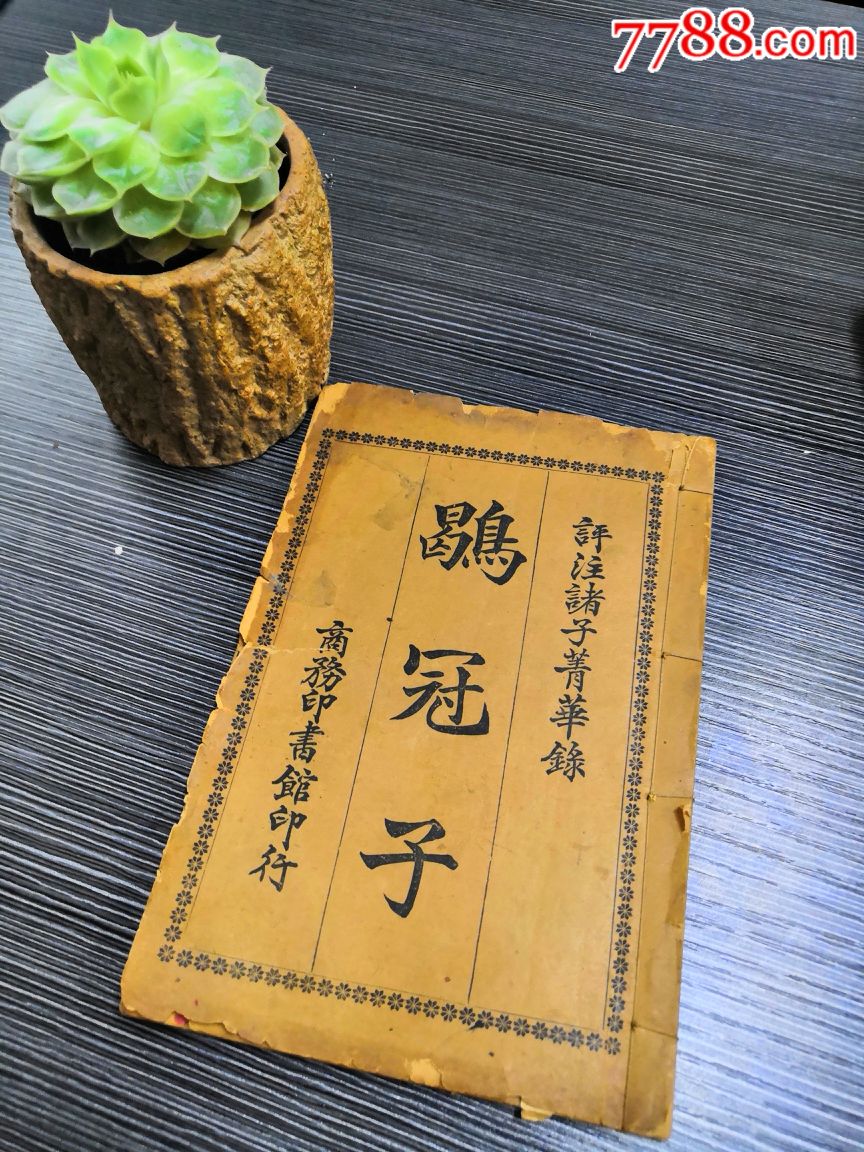 7788.com
評注諸子菁華錄
鶡冠子
商務印書館印行